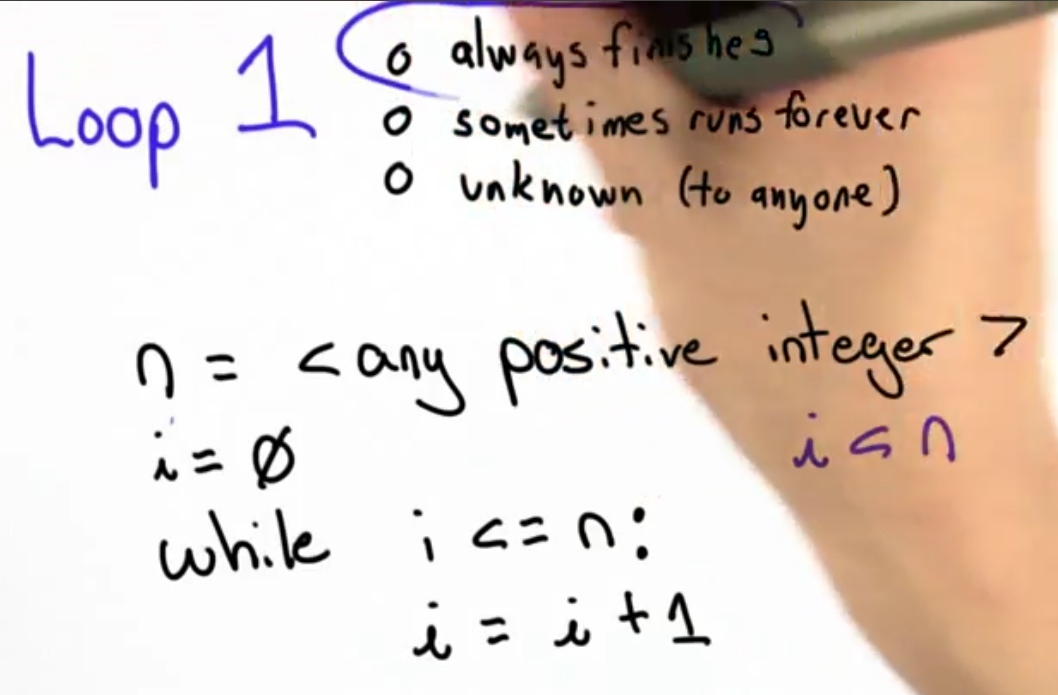 Loop 1
o always finishes
o sometimes runs forever
o unknown (to anyone)
n = <any positive integer>
i = Ø
i < n
while i <= n:
i = i + 1